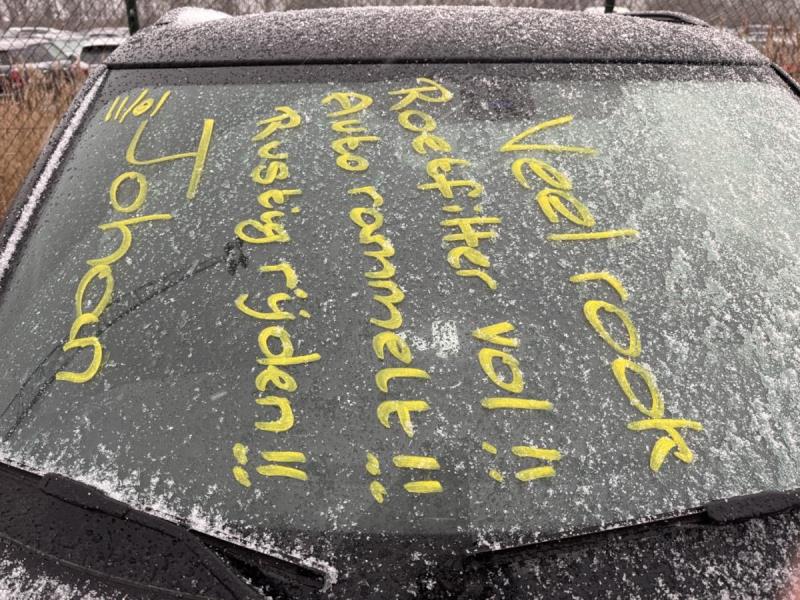 Veel rook
Roetfilter vol!!
Auto rammelt!!
Rustig rijden!!
Johan
10/11